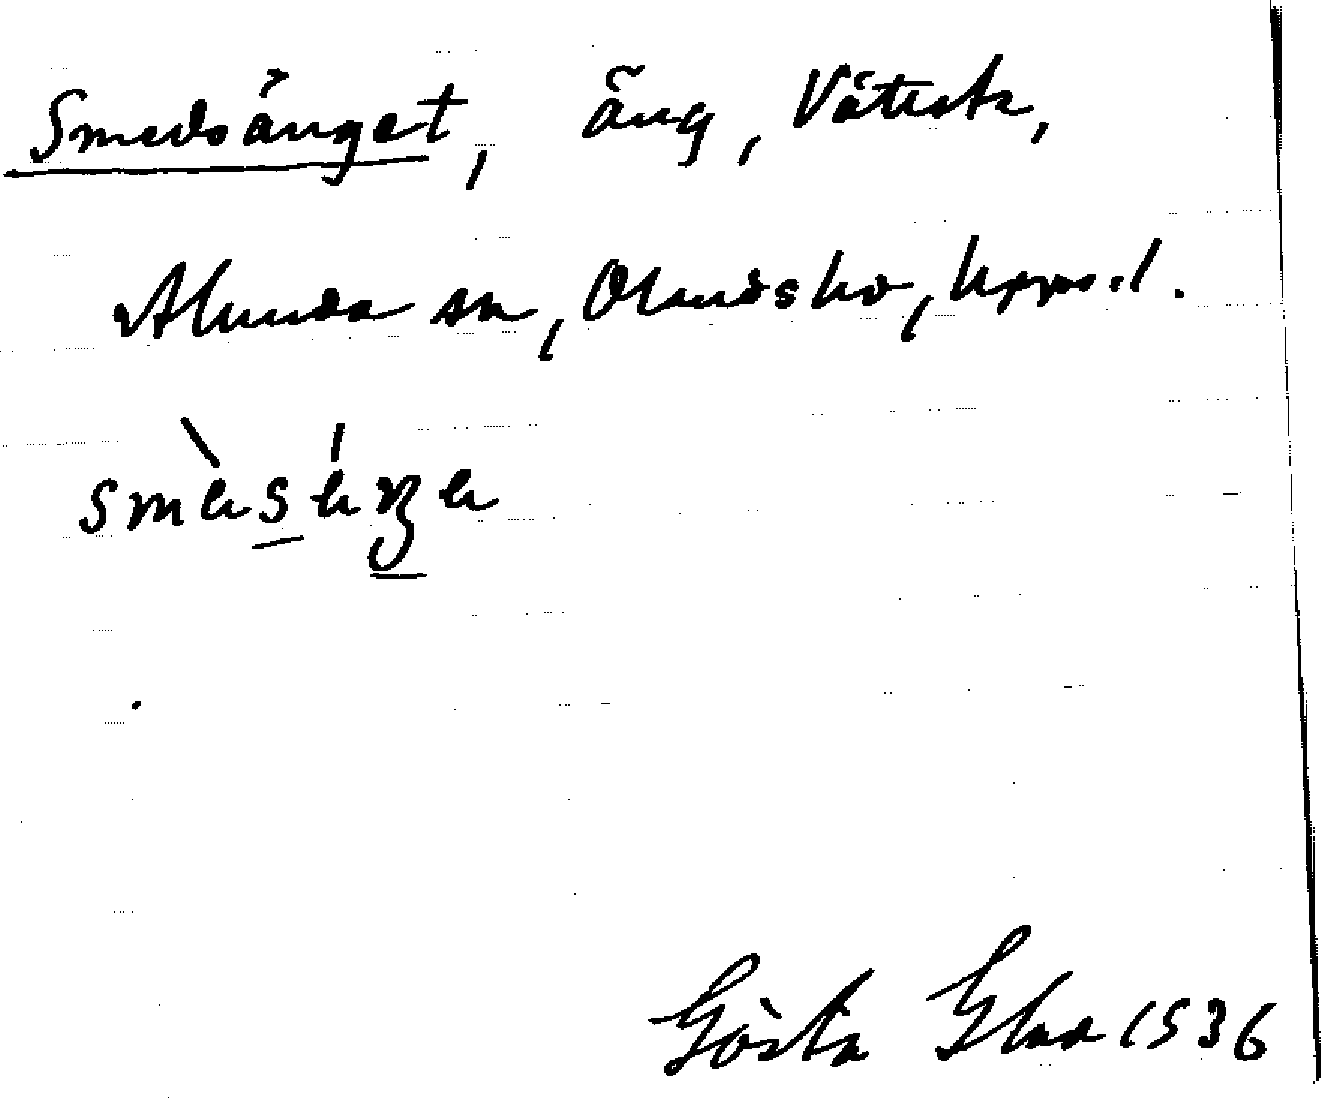 Smedsänget, äng, Vättesta,
Alunda sn, Olands hd, Upps. l.
Gösta Glad 1936